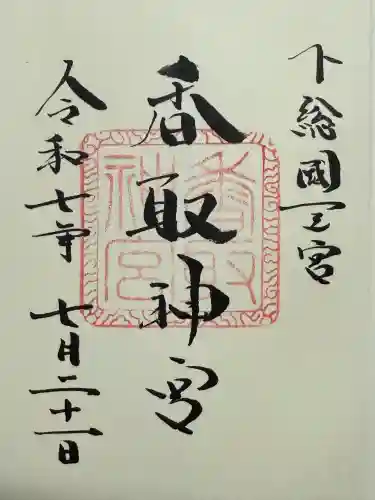 下総國一之宮
香取神宮
令和七年 七月二十一日
香取神宮